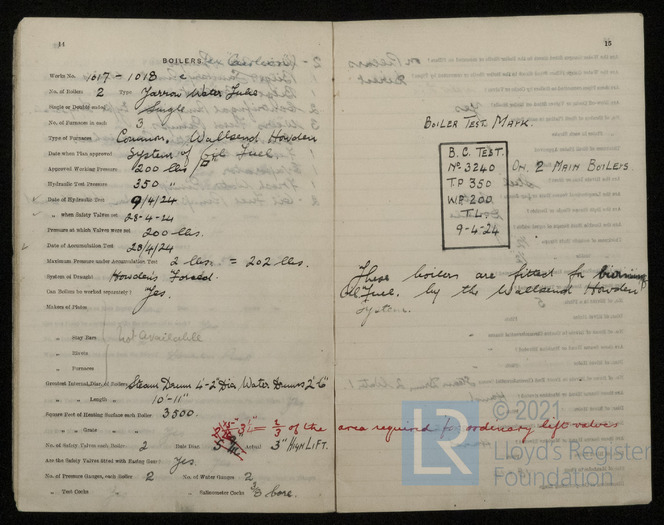 14
BOILERS.
Works No. 1017 - 1018
No. of Boilers 2 Type Yarrow Water Tube
Single or Double ended Single
No. of Furnaces in each 3
Type of Furnaces Common, Wallsend Howden
Date when Plan approved System of Oil Fuel
Approved Working Pressure 200 lbs
Hydraulic Test Pressure 350 "
Date of Hydraulic Test 9/4/24
" when Safety Valves set 28-4-24
Pressure at which Valves were set 200 lbs.
Date of Accumulation Test 28/4/24
Maximum Pressure under Accumulation Test 2 lbs. = 202 lbs.
System of Draught Howden's Forced.
Can Boilers be worked separately? Yes.
Makers of Plates
" Stay Bars Not Available
" Rivets
" Furnaces
Greatest Internal Diar. of Boilers Steam Drum 4-2" Dia Water Drums 2'6"
" " Length " 10'-11"
Square Feet of Heating Surface each Boiler 3500.
" " Grate " "
= 2/3 of the area required for ordinary lift valves
No. of Safety Valves each Boiler 2 Rule Diar. Actual 3" HIGH LIFT.
Are the Safety Valves fitted with Easing Gear? Yes.
No. of Pressure Gauges, each Boiler 2 No. of Water Gauges 2
" Test Cocks " Salinometer Cocks 3/8 bore.
15
BOILER TEST MARK.
B.C. TEST.
No. 3240
T.P 350
W.P. 200
T.L
9-4-24
ON 2 MAIN BOILERS.
These boilers are fitted for burning
Oil Fuel, by the Wallsend Howden
System.
© 2021
LR
Lloyd's Register
Foundation